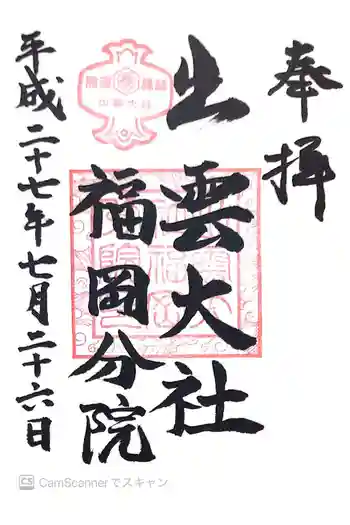 奉拝
出雲大社
福岡分院
平成二十七年七月二十六日
CS CamScannerでスキャン